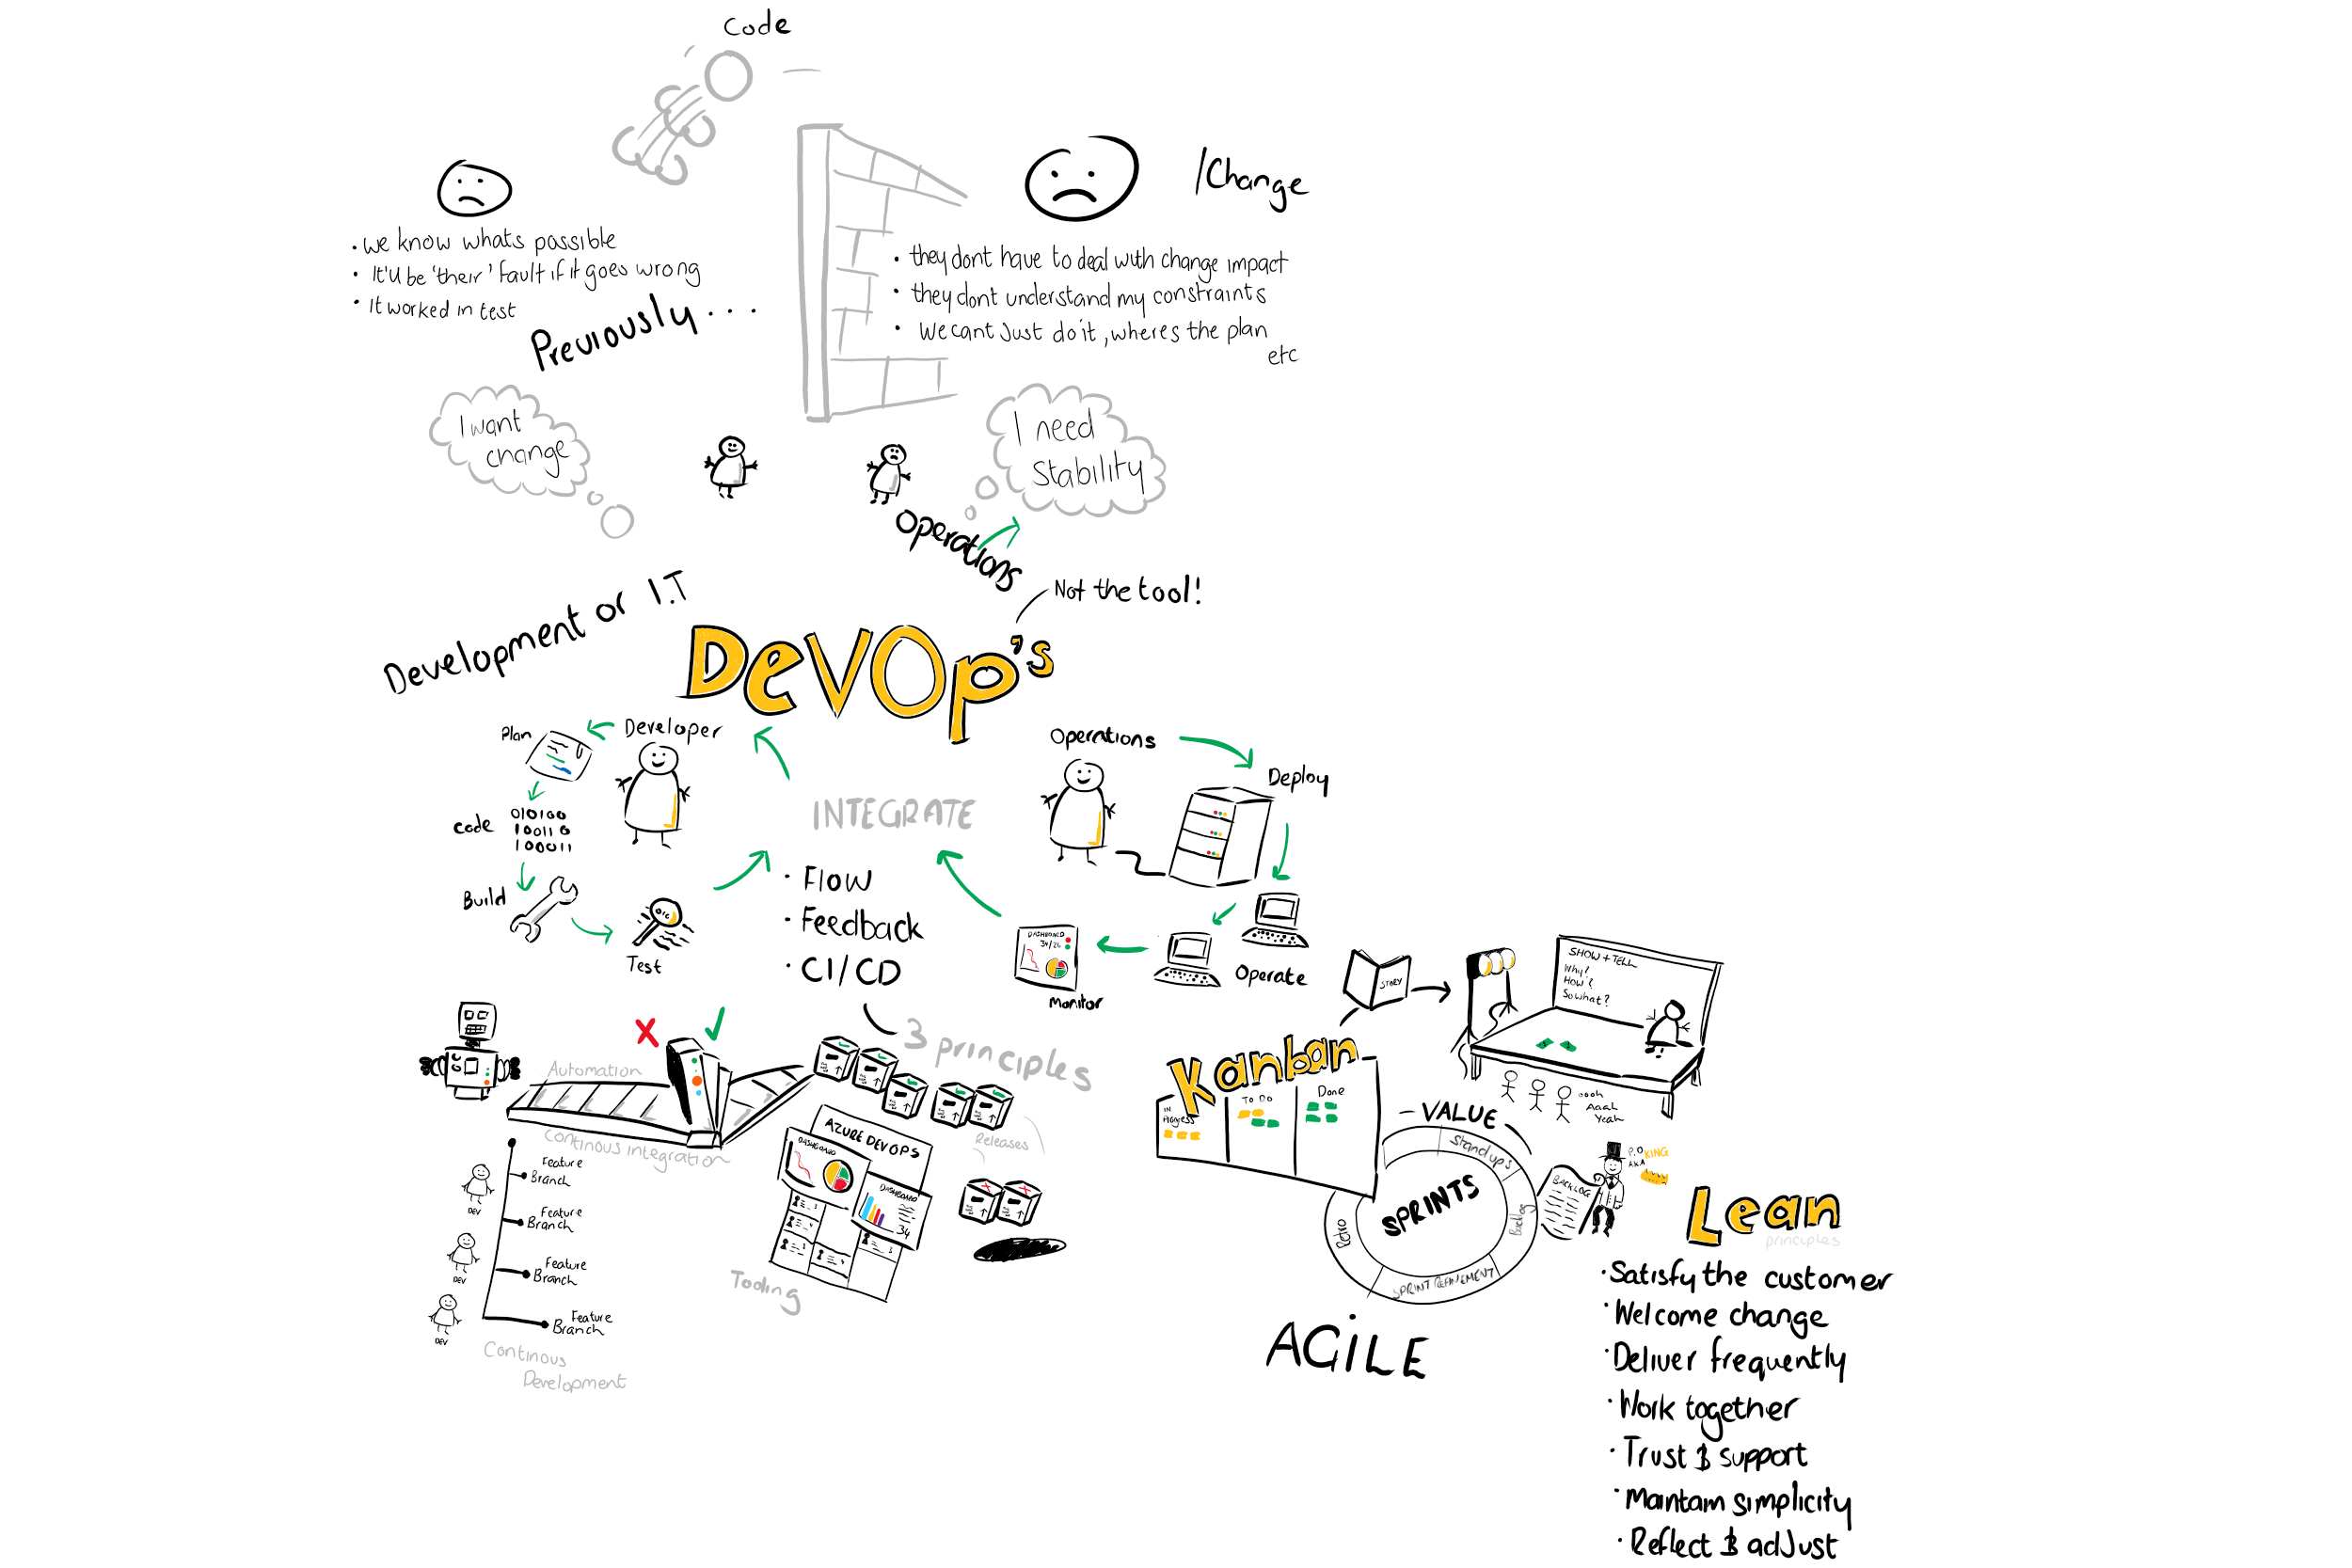 Code
/Change
• we know whats possible
• It'll be 'their' fault if it goes wrong
• It worked in test
Previously...
• they dont have to deal with change impact
• they dont understand my constraints
• We cant just do it, wheres the plan
etc
I want
change
I need
stability
Operations
Development or I.T
Not the tool!
DevOp's
Developer
Plan
Code
010100
100110
100011
Build
Test
INTEGRATE
• Flow
• Feedback
• CI/CD
3 principles
Operations
Deploy
Operate
DASHBOARD
34/26
Monitor
Automation
Continous integration
Releases
Feature
Branch
Feature
Branch
Feature
Branch
Feature
Branch
DEV
DEV
DEV
Continous
Development
AZURE DEVOPS
DASHBOARD
DASHBOARD
34
Tooling
STORY
SHOW + TELL
Why?
How?
So what?
oooh
Aaah
Yeah
Kanban
IN
Progress
TO DO
Done
VALUE
Stand ups
Backlog
SPRINT REFINEMENT
Retro
SPRINTS
BACKLOG
P.O
AKA
KING
AGILE
Lean
principles
• Satisfy the customer
• Welcome change
• Deliver frequently
• Work together
• Trust & support
• Maintain simplicity
• Reflect & adjust